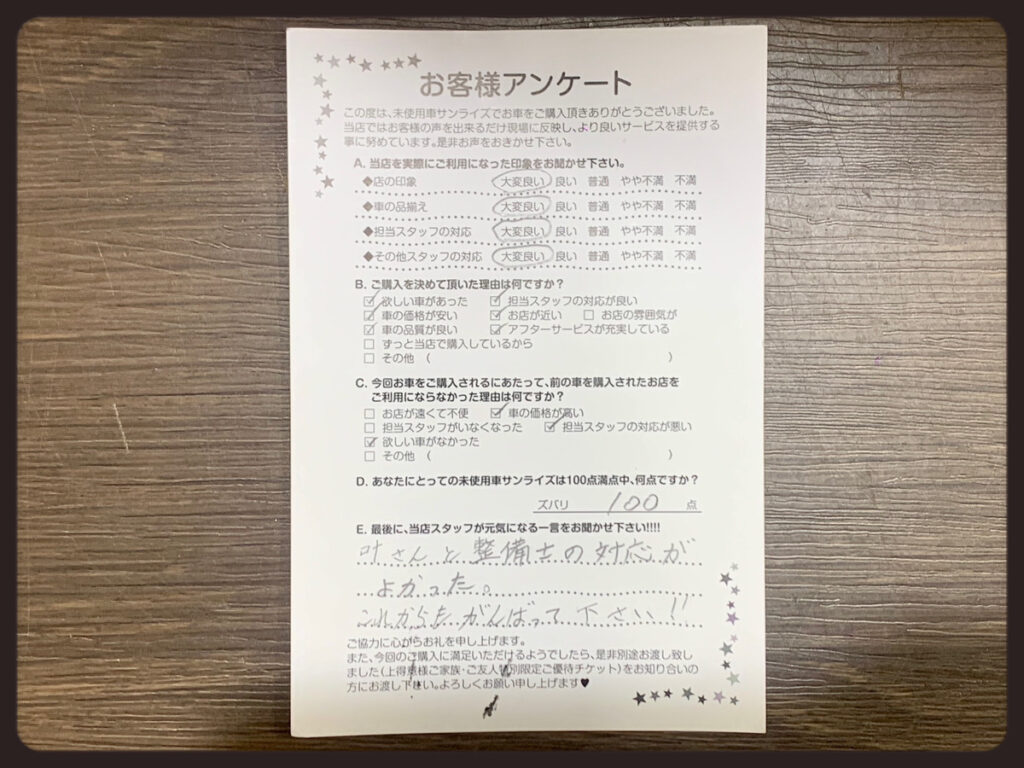 お客様アンケート
この度は、未使用車サンライズでお車をご購入頂きありがとうございました。
当店ではお客様の声を出来るだけ現場に反映し、より良いサービスを提供する
事に努めています。是非お声をおきかせ下さい。
A. 当店を実際にご利用になった印象をお聞かせ下さい。
◆店の印象 大変良い 良い 普通 やや不満 不満
◆車の品揃え 大変良い 良い 普通 やや不満 不満
◆担当スタッフの対応 大変良い 良い 普通 やや不満 不満
◆その他スタッフの対応 大変良い 良い 普通 やや不満 不満
B. ご購入を決めて頂いた理由は何ですか?
☑ 欲しい車があった ☑ 担当スタッフの対応が良い
☑ 車の価格が安い ☑ お店が近い □ お店の雰囲気が
☑ 車の品質が良い ☑ アフターサービスが充実している
□ ずっと当店で購入しているから
□ その他 ( )
C. 今回お車をご購入されるにあたって、前の車を購入されたお店を
ご利用にならなかった理由は何ですか?
□ お店が遠くて不便 ☑ 車の価格が高い
□ 担当スタッフがいなくなった ☑ 担当スタッフの対応が悪い
☑ 欲しい車がなかった
□ その他 ( )
D. あなたにとっての未使用車サンライズは100点満点中、何点ですか?
ズバリ 100 点
E. 最後に、当店スタッフが元気になる一言をお聞かせ下さい!!!!
叶さんと整備士の対応が
よかった。
これからもがんばって下さい!!
ご協力に心からお礼を申し上げます。
また、今回のご購入に満足いただけるようでしたら、是非別途お渡し致し
ました(上得意様ご家族・ご友人特別限定ご優待チケット)をお知り合いの
方にお渡し下さい。よろしくお願い申し上げます♥